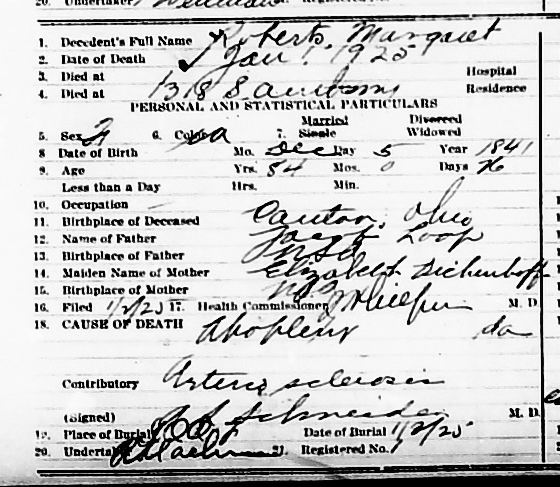 20. Undertaker
1. Decedent's Full Name Roberts, Margaret
2. Date of Death Jan. 1, 1925
3. Died at Hospital
4. Died at 1318 S Residence
PERSONAL AND STATISTICAL PARTICULARS
Married Divorced
5. Sex F 6. Color 7. Single Widowed
8 Date of Birth Mo. Dec Day 5 Year 1841
9. Age Yrs. 84 Mos. 0 Days 26
Less than a Day Hrs. Min.
10. Occupation
11. Birthplace of Deceased Canton, Ohio
12. Name of Father Jacob Loop
13. Birthplace of Father
14. Maiden Name of Mother Elizabeth Dichenhoff
15. Birthplace of Mother
16. Filed 1/2/25 17. Health Commissioner M. D.
18. CAUSE OF DEATH Apoplexy da
Contributory Arterio sclerosis
(Signed) Schneider M. D.
19. Place of Burial Date of Burial 1/3/25
20. Undertaker 21. Registered No.